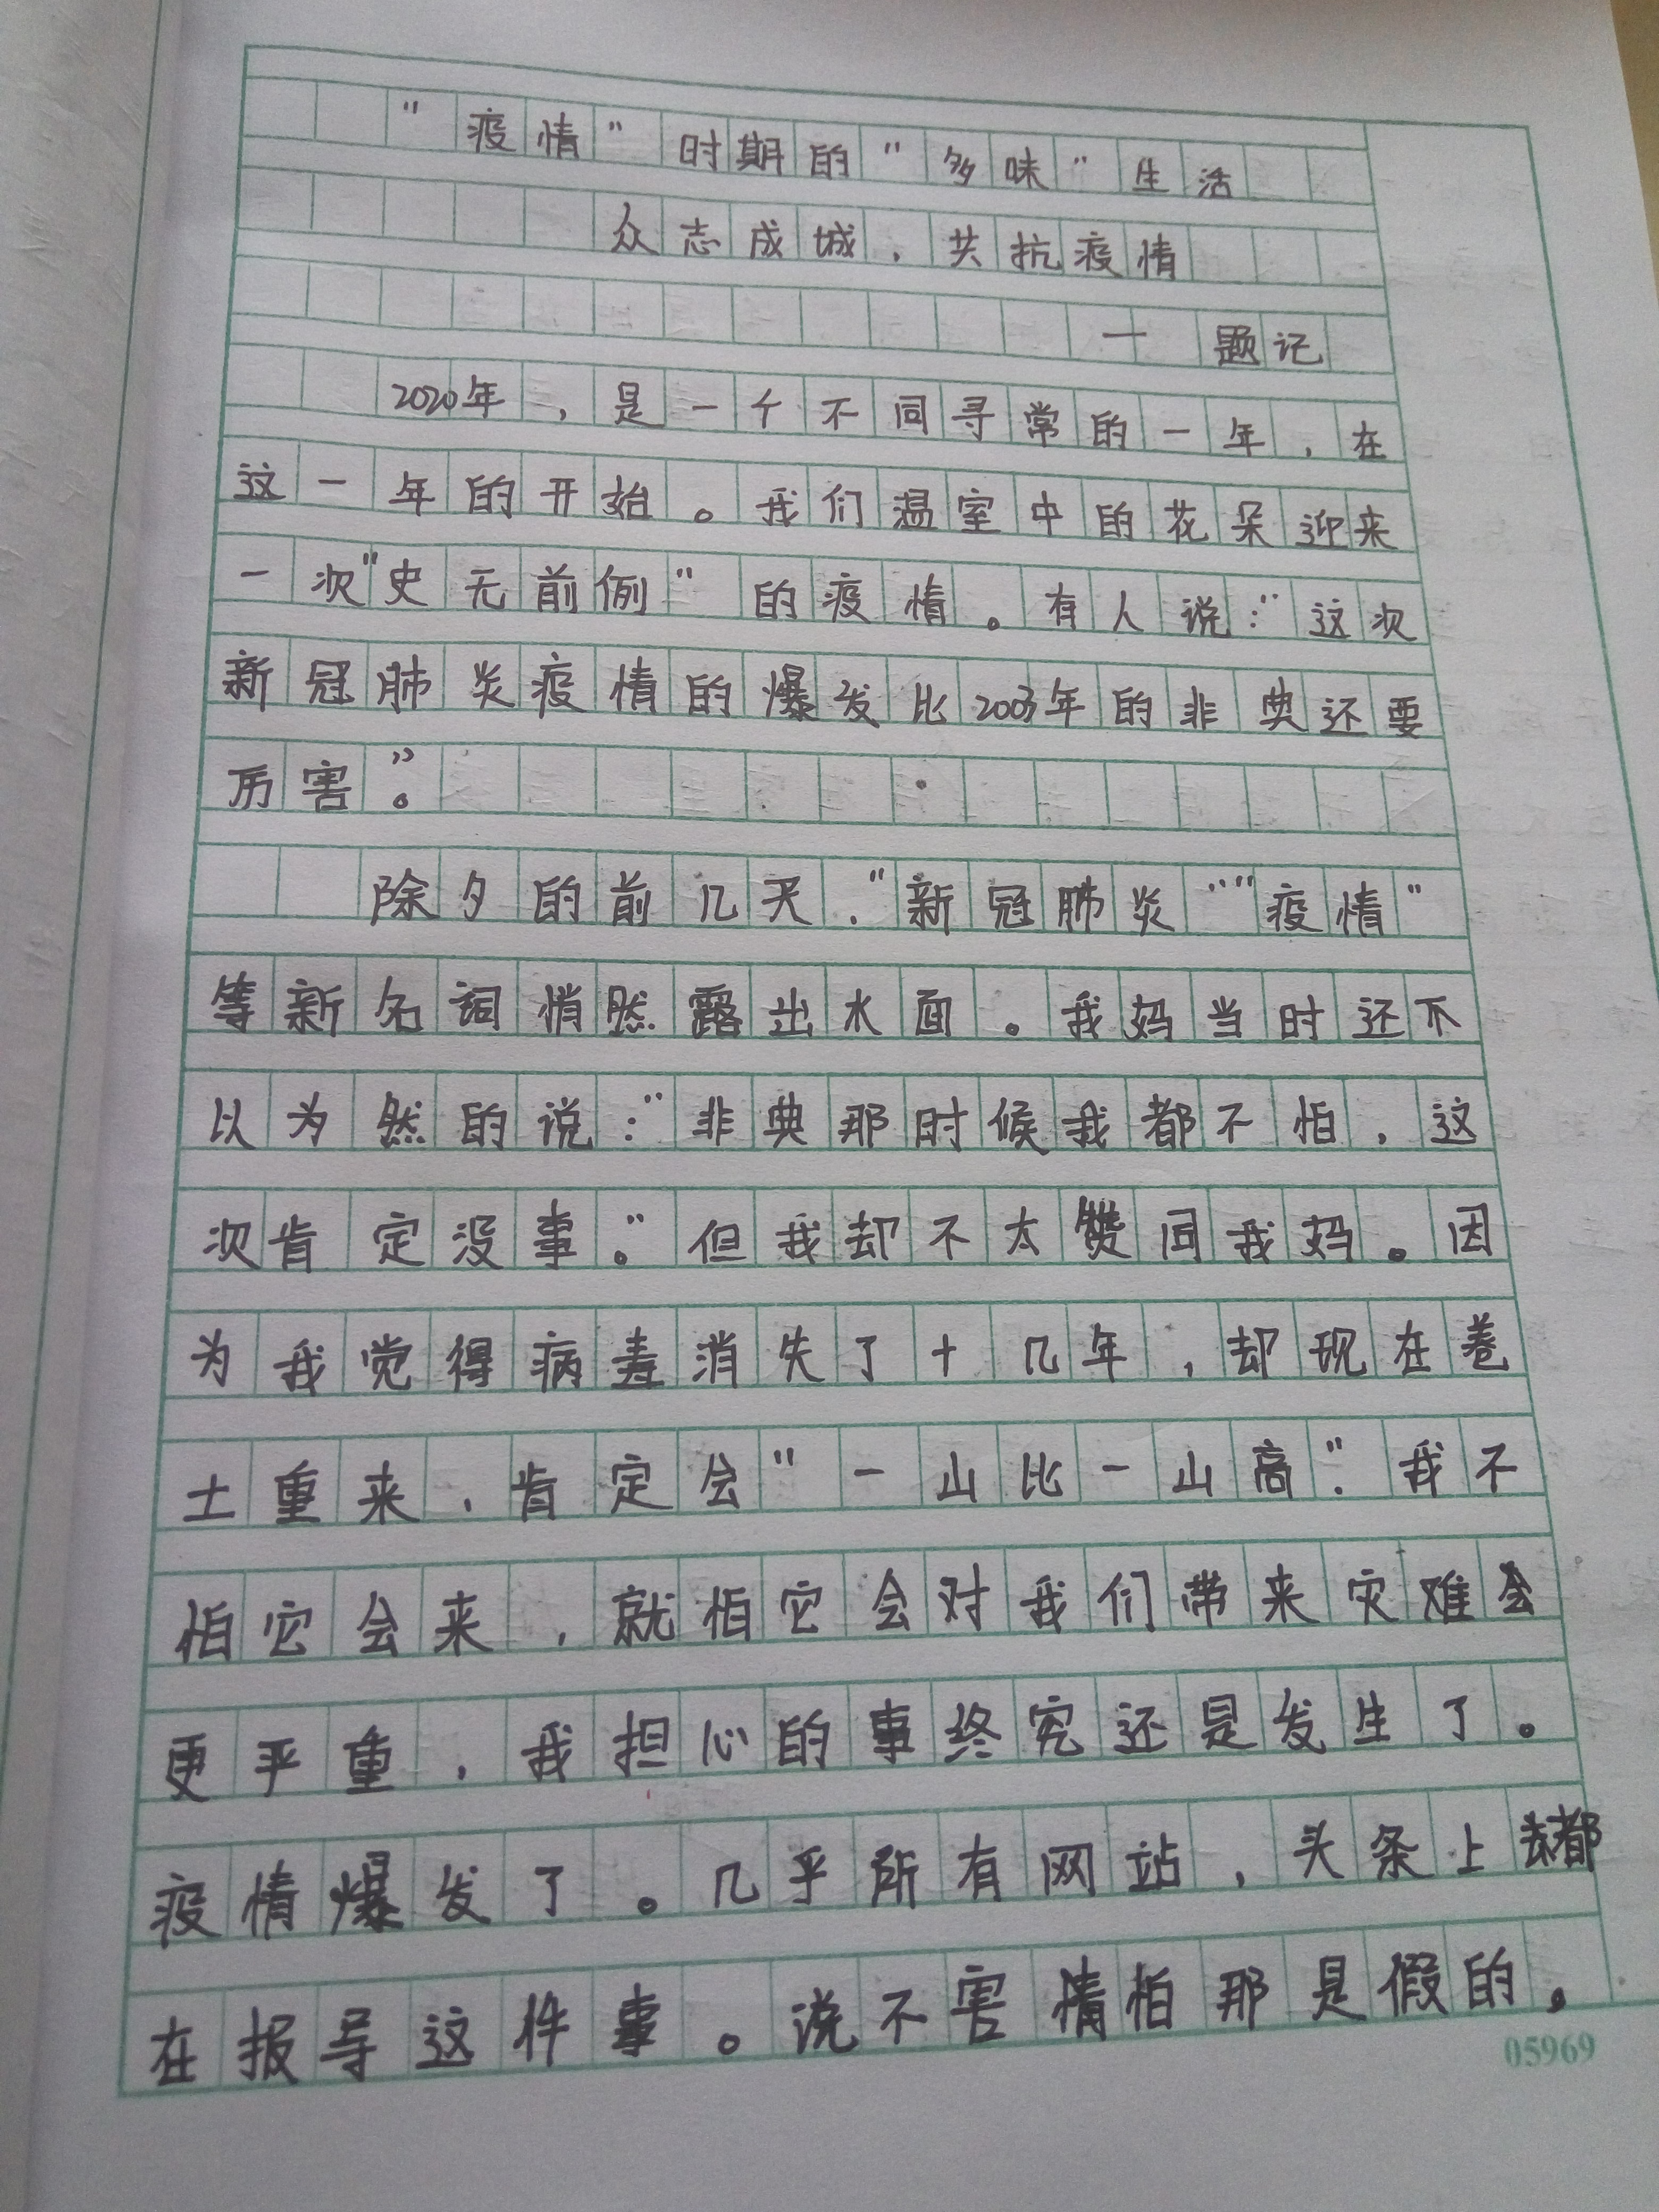 “疫情”时期的“多味”生活
众志成城，共抗疫情
一 题记
2020年，是一个不同寻常的一年，在
这一年的开始。我们温室中的花朵迎来
一次“史无前例”的疫情。有人说：“这次
新冠肺炎疫情的爆发比2003年的非典还要
厉害”。
除夕的前几天，“新冠肺炎”“疫情”
等新名词悄然露出水面。我妈当时还不
以为然的说：“非典那时候我都不怕，这
次肯定没事。”但我却不太赞同我妈。因
为我觉得病毒消失了十几年，却现在卷
土重来，肯定会“一山比一山高”.我不
怕它会来，就怕它会对我们带来灾难会
更严重，我担心的事终究还是发生了。
疫情爆发了。几乎所有网站，头条上都
在报导这件事。说不害情怕那是假的，
05969